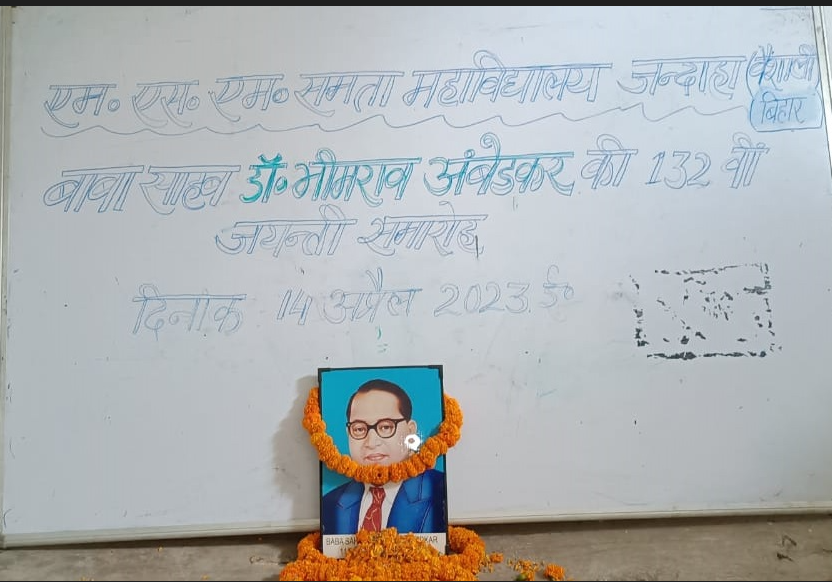 एम॰ एस॰ एम॰ समता महाविद्यालय जन्दाहा (वैशाली)
बिहार
बाबा साहब डॉ॰ भीमराव अंबेडकर की 132 वीं
जयन्ती समारोह
दिनांक 14 अप्रैल 2023 ई॰
BABA SAH DKAR